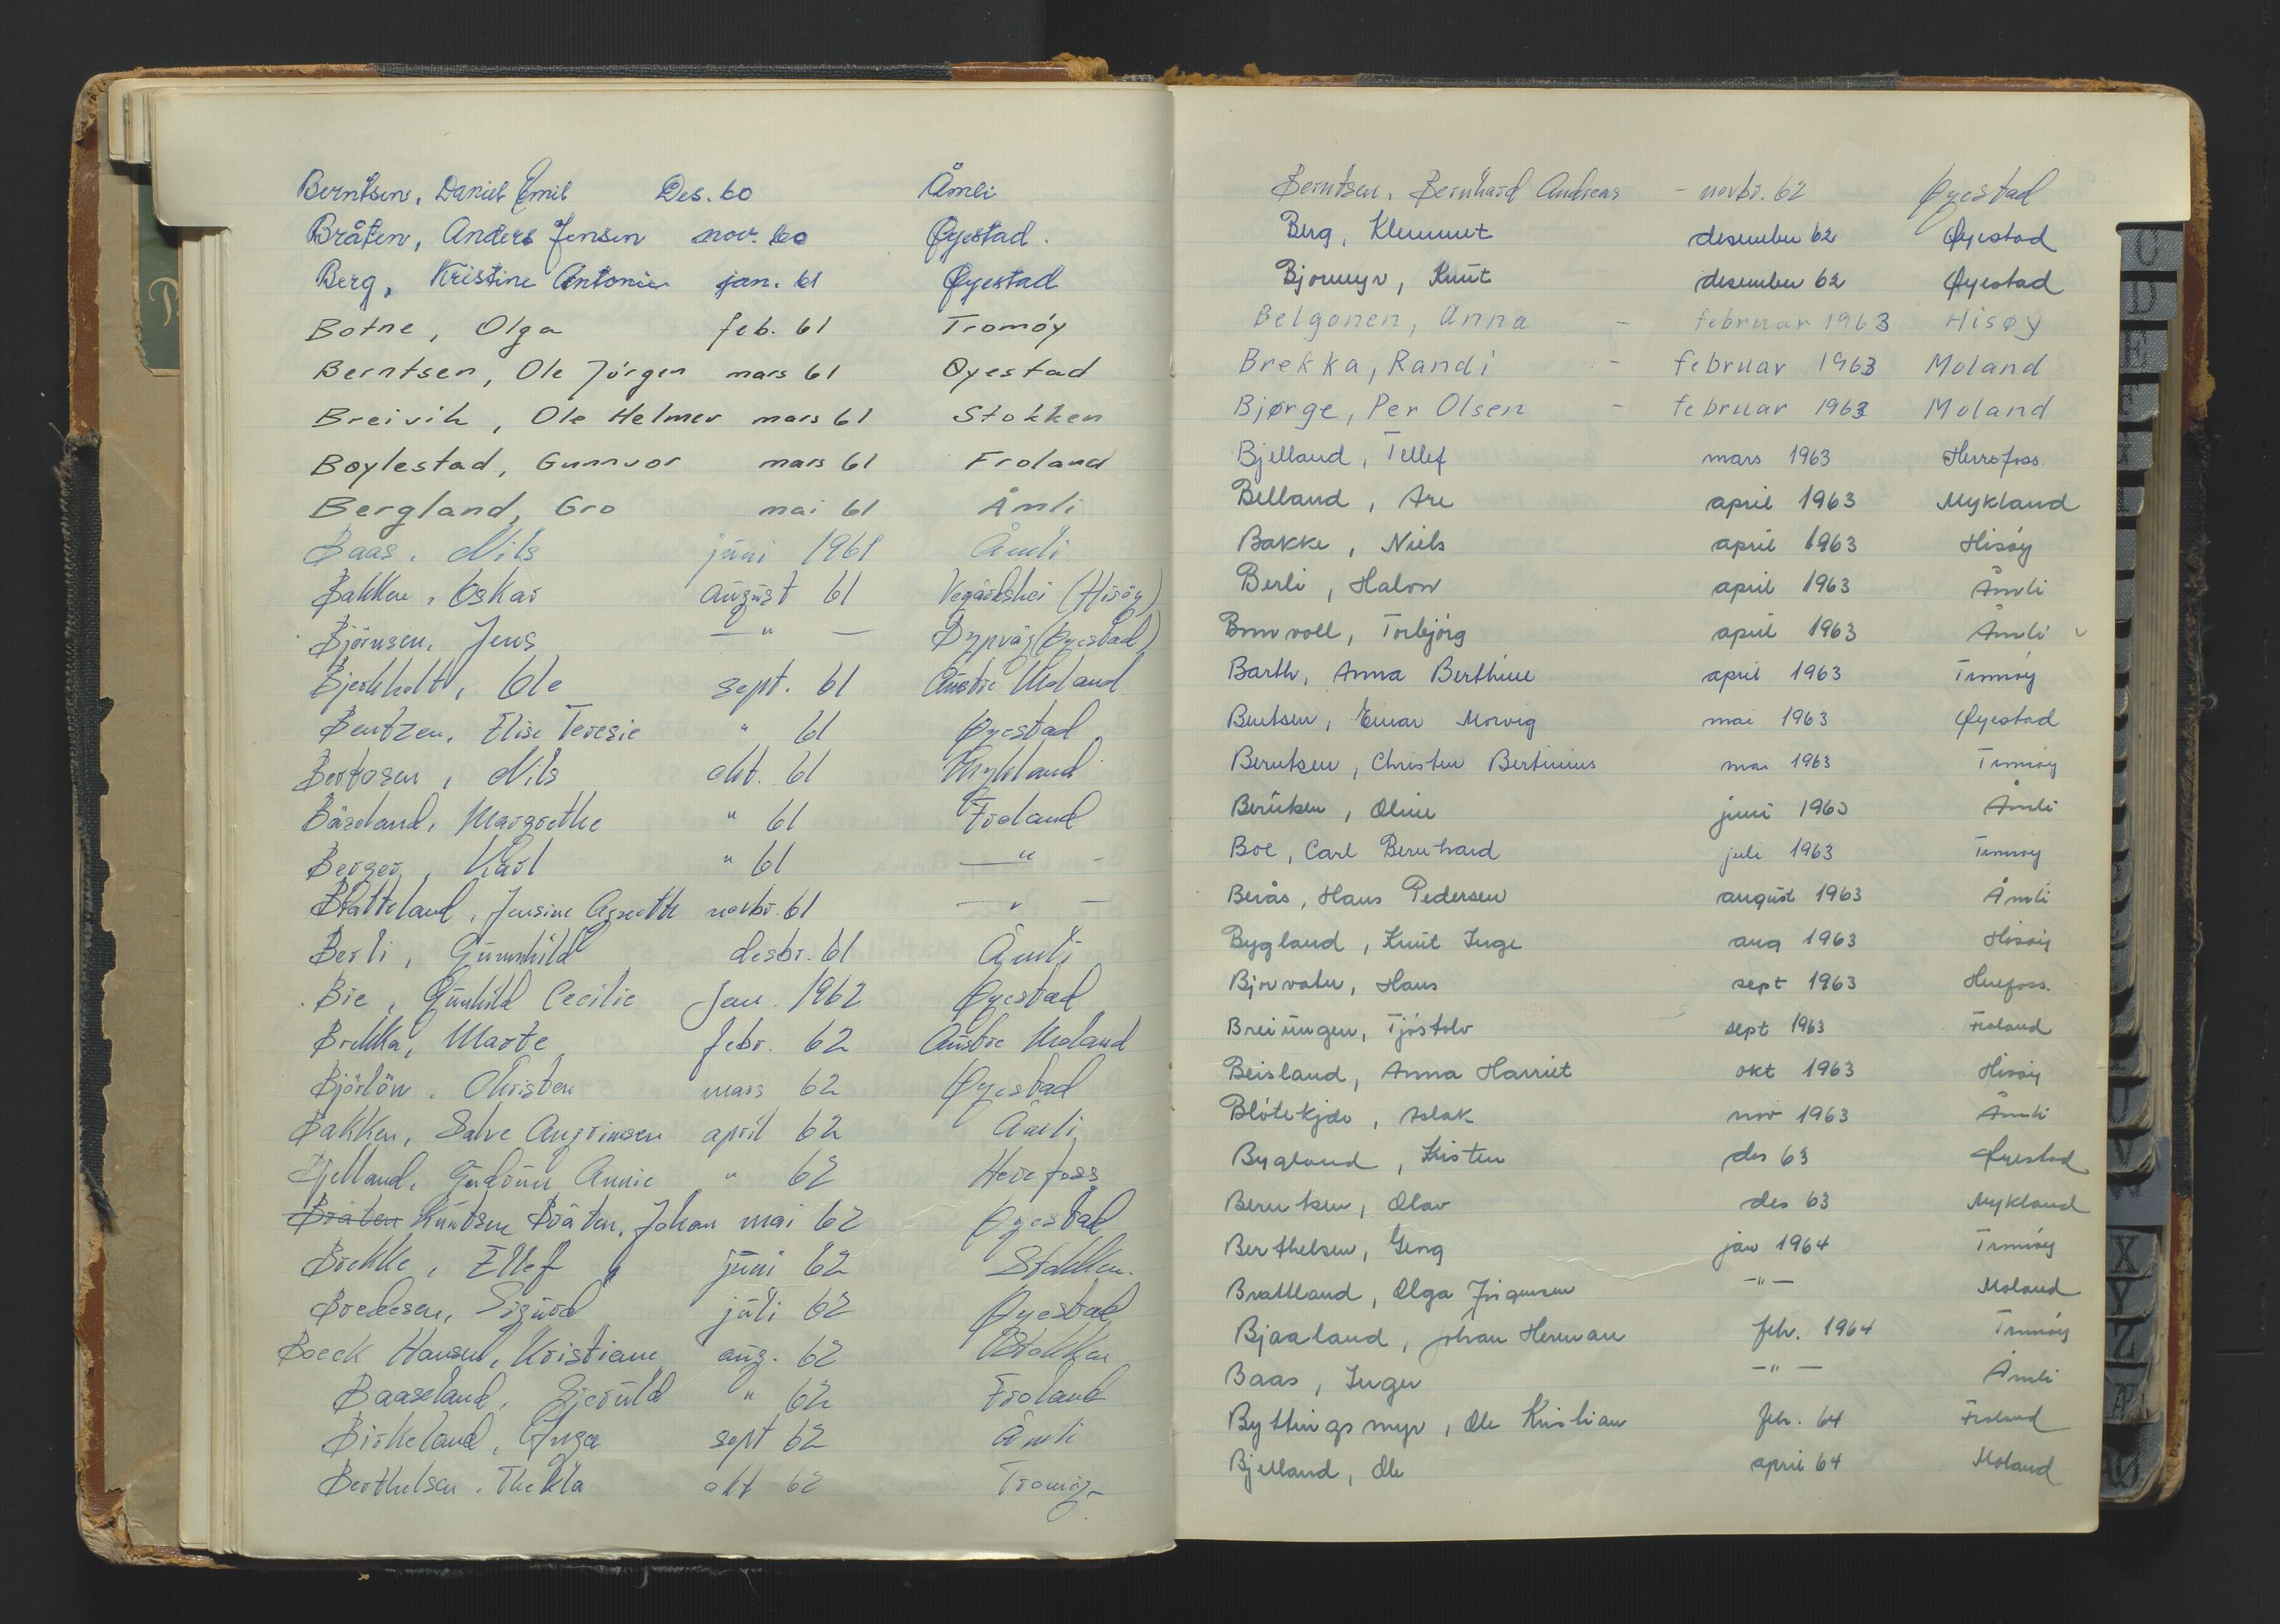 Berntsen, Daniel Emil Des. 60 Åmli
Bråten, Anders Jensen nov. 60 Øyestad.
Berg, Kristine Antonie jan. 61 Øyestad
Botne, Olga feb. 61 Tromöy
Berntsen, Ole Jörgen mars 61 Öyestad
Breivik, Ole Helmer mars 61 Stokken
Boylestad, Gunnvor mars 61 Froland
Bergland, Gro mai 61 Åmli
Baas, Nils juni 1961 Åmli
Bakken, Oskar august 61 Vegårdshei (Hisöy)
Björnsen, Jens — " — Dypvåg (Øyestad)
Bjerkholt, Ole sept. 61 Austre Moland
Bentzen, Elise Teresie " 61 Øyestad
Nils okt. 61 Mykland
Båseland, Margrethe " 61 Froland
Berger, Karl " 61 — " -
Bratteland, Jensine Agnethe novbr. 61 — " —
Berli, Gunnhild desbr. 61 Åmli
Bie, Gunhild Cecilie Jan. 1962 Øyestad
Brekka, Marte febr. 62 Austre Moland
Christen mars 62 Øyestad
Bakken, Salve Augrimsen april 62 Åmli
Bjelland, Gudrun Annie " 62 Herefoss
Bråten Knutsen Bråten, Johan mai 62 Øyestad
Brekke, Ellef juni 62 Stokken.
Bredesen, Sigurd juli 62 Øyestad
Boeck Hansen, Kristiane aug. 62 Stokken
Baaseland, Gjeruld " 62 Froland
Birkeland, Inga sept 62 Åmli
Berthelsen, Thekla okt 62 Tromöy
Berntsen, Bernhard Andreas - novbr. 62 Øyestad
Berg, Klemmet desember 62 Øyestad
Bjormyr, Knut desember 62 Øyestad
Belgonen, Anna - februar 1963 Hisøy
Brekka, Randi - februar 1963 Moland
Bjørge, Per Olsen - februar 1963 Moland
Bjelland, Tellef mars 1963 Herrefoss
Belland, Are april 1963 Mykland
Bakke, Niels april 1963 Hisöy
Berli, Halvor april 1963 Åmli
Torbjörg april 1963 Åmli
Barth, Anna Berthine april 1963 Tromöy
Berntsen, Einar Morvig mai 1963 Øyestad
Berntsen, Christen Bertinius mai 1963 Tromöy
Berntsen, Oline juni 1963 Åmli
Boe, Carl Bernhard juli 1963 Tromöy
Berås, Hans Pedersen august 1963 Åmli
Bygland, Knut Inge aug 1963 Hisöy
Bjorvatn, Hans sept 1963 Herefoss.
Breiungen, Tjöstolv sept 1963 Froland
Beisland, Anna Harriet okt 1963 Hisöy
Blötekjær, Aslak nov 1963 Åmli
Bygland, Kisten des 63 Øyestad
Berntsen, Olav des 63 Mykland
Berthelsen, Georg jan 1964 Tromöy
Brattland, Olga Jörgensen — " — Moland
Bjaaland, Johan Herman feb. 1964 Tromöy
Baas, Inger — " — Åmli
Byttingsmyr, Ole Kristian feb. 64 Froland
Bjelland, Ole april 64 Moland